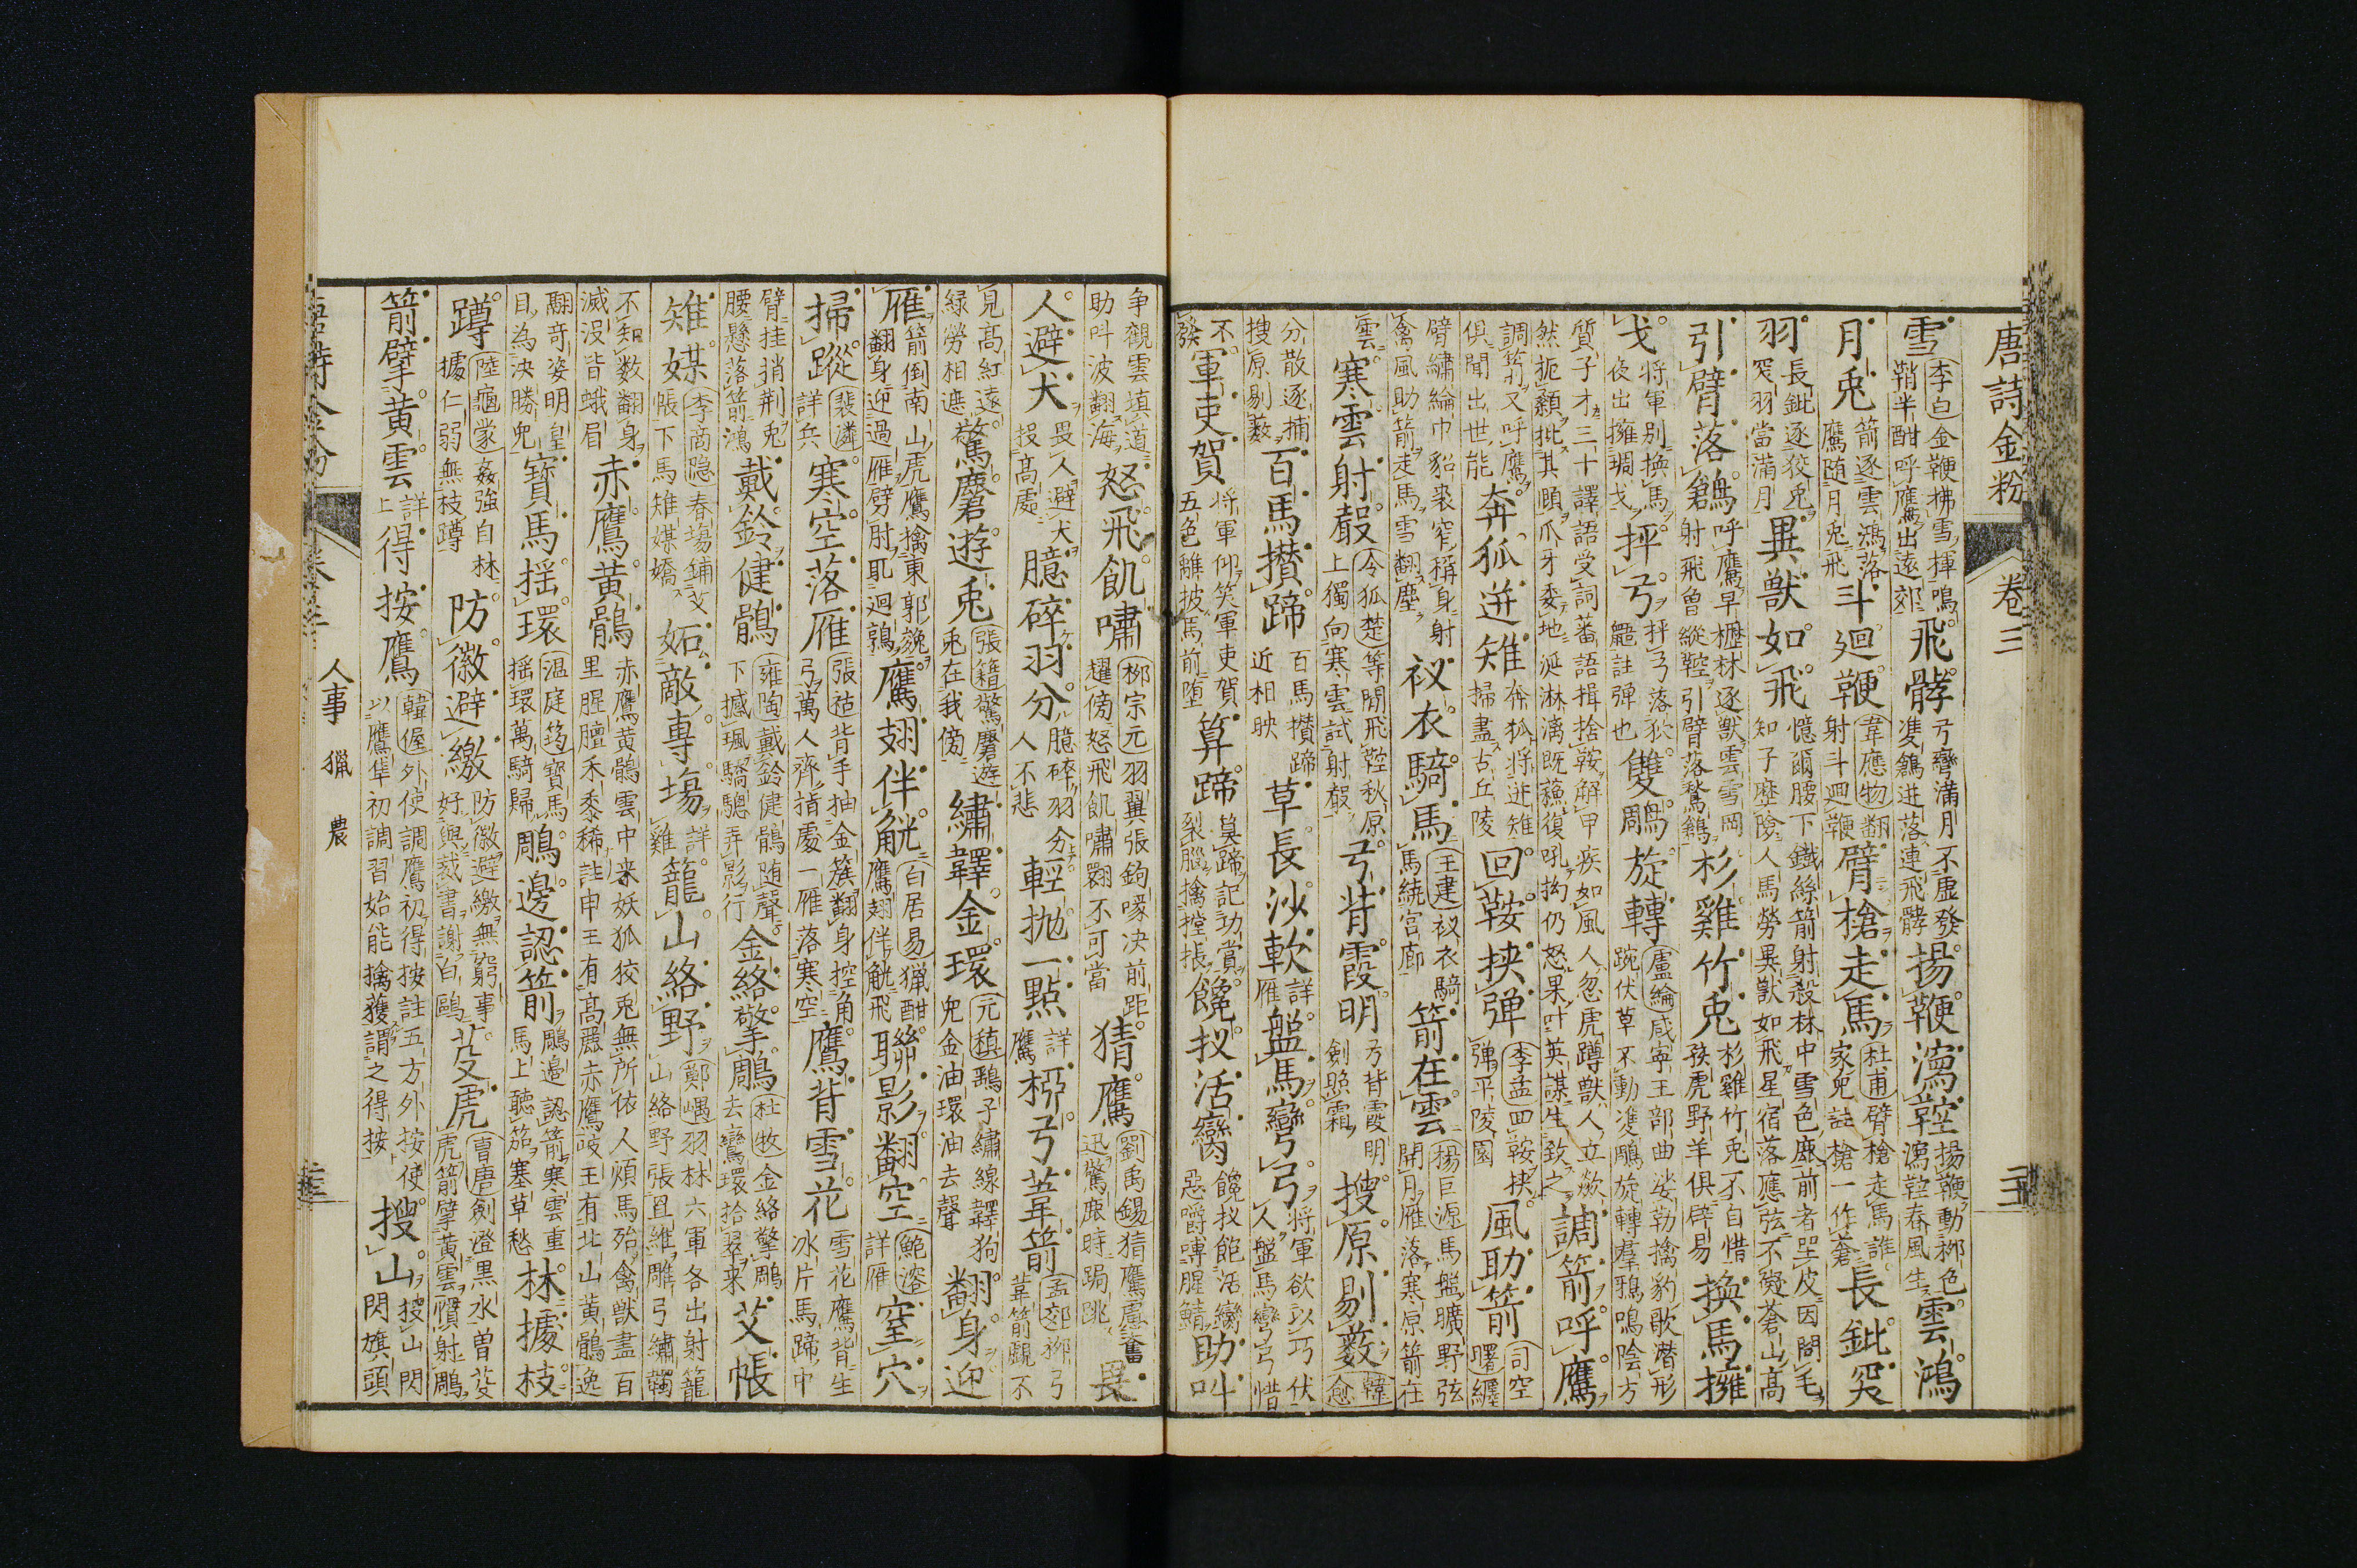 唐詩金粉 卷三
雪 李白金鞭拂雪揮鳴鞘半酣呼鷹出遠郊 飛髇 弓彎滿月不虛發雙鶬迸落連飛髇 揚鞭瀉鞚 揚鞭動柳色瀉鞚春風生 雲鴻
月兎 箭逐雲鴻落鷹随月兎飛 斗廻鞭 韋應物翻射斗廻鞭 臂槍走馬 杜甫臂槍走馬誰家兒註槍一作蒼 長鈚突
羽 長鈚逐狡兎突羽當滿月 異獸如飛 憶爾腰下鐵絲箭射殺林中雪色鹿前者坐皮因問毛知子歷險人馬勞異獸如飛星宿落應弦不礙蒼山高
引臂落鶬 呼鷹早櫪林逐獸雲雪岡射飛曾縱鞚引臂落鶖鶬 杉雞竹兎 杉雞竹兎不自惜孩虎野羊俱辟易 換馬擁
戈 將軍別換馬夜出擁琱戈 抨弓 抨弓落狖鼯註弾也 雙鵰旋轉 盧綸咸寧王部曲娑勒擒豹歌潛形踠伏草不動雙鵰旋轉羣鴉鳴陰方
質子才三十譯語受詞蕃語揖捨鞍解甲疾如風人忽虎蹲獸人立歘然扼顙批其頤爪牙委地涎淋漓既蘓復吼拗仍怒果叶英謀生致之 調箭呼鷹
調箭又呼鷹俱聞出世能 奔狐迸雉 奔狐將迸雉掃盡古丘陵 回鞍挟弾 李孟四鞍挟弾平陵園 風助箭 司空曙纒
臂繡綸巾貂裘窄稱身射禽風助箭走馬雪翻塵 衩衣騎馬 王建衩衣騎馬繞宮廊 箭在雲 楊巨源馬盤曠野弦開月雁落寒原箭在
雲 寒雲射鷇 令狐楚等閑飛鞚秋原上獨向寒雲試射鷇 弓背霞明 弓背霞明劍照霜 搜原剔藪 韓愈
分散逐捕搜原剔藪 百馬攢蹄 百馬攢蹄近相映 草長沙軟 詳雁 盤馬彎弓 將軍欲以巧伏人盤馬彎弓惜
不發 軍吏賀 將軍仰笑軍吏賀五色離披馬前堕 算蹄 算蹄記功賞裂腦擒摚掁 饞扠活臠 饞扠飽活臠惡嚼嘩腥鯖 助叫
争觀雲填道助叫波翻海 怒飛飢嘯 柳宗元羽翼張鉤喙决前距趯傍怒飛飢嘯翾不可當 猜鷹 劉禹錫猜鷹慮奮迅驚鹿時跼跳 畏
人避犬 畏人避犬投高處 臆碎羽分 臆碎羽分人不悲 輕抛一點 詳鷹 柳弓葦箭 孟郊柳弓葦箭覰不
見高紅遠緑勞相遮 驚麏遊兎 張籍驚麏遊兎在我傍 繡韝金環 元稹鷂子繡線韝狗兒金油環油去聲 翻身迎
雁 箭倒南山虎鷹擒東郭㕙翻身迎過雁劈肘取迴鶉 鷹翅伴觥 白居易獵酣鷹翅伴觥飛 聯影翻空 鮑溶詳雁 窒穴
掃蹤 裴潾詳兵 寒空落雁 張祜背手抽金簇翻身控角弓萬人齊指處一雁落寒空 鷹背雪花 雪花鷹背生冰片馬蹄中
臂挂捎荆兎腰懸落箭鴻 戴鈴健鶻 雍陶戴鈴健鶻随聲下撼珮驕驄弄影行 金絡擎鵰 杜牧金絡擎鵰去鸞環拾翠来 艾帳
雉媒 李商隱春塲鋪艾帳下馬雉媒嬌 妬敵專塲 詳雞 籠山絡野 鄭嵎羽林六軍各出射籠山絡野張罝維雕弓繡韣
不知数翻身滅沒皆蛾眉 赤鷹黃鶻 赤鷹黃鶻雲中来妖狐狡兎無所依人煩馬殆禽獸盡百里腥膻禾黍稀註申王有高麗赤鷹岐王有北山黃鶻逸
翮奇姿明皇目為決勝兒 寳馬揺環 温庭筠寳馬揺環萬騎歸 鵰邊認箭 鵰邊認箭寒雲重馬上聽笳塞草愁 林據枝
蹲 陸龜蒙姦強自林據仁弱無枝蹲 防徼避繳 防徼避繳無窮事好與裁書謝白鷗 芟虎 曹唐劍澄黒水曽芟虎箭擘黃雲慣射鵰
箭擘黃雲 詳上 得按鷹 韓偓外使調鷹初得按註五方外按使以鷹隼初調習始能擒獲謂之得按 搜山 搜山閃閃旗頭
卷三 人事 獵 農